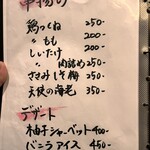 串揚め
鶏つくね 250-
〃 もも 200-
しいたけ 200-
〃 肉詰め 250-
ささみしそ梅 250-
天使の海老 350-
デザート
柚子シャーベット 400-
バニラアイス 450-